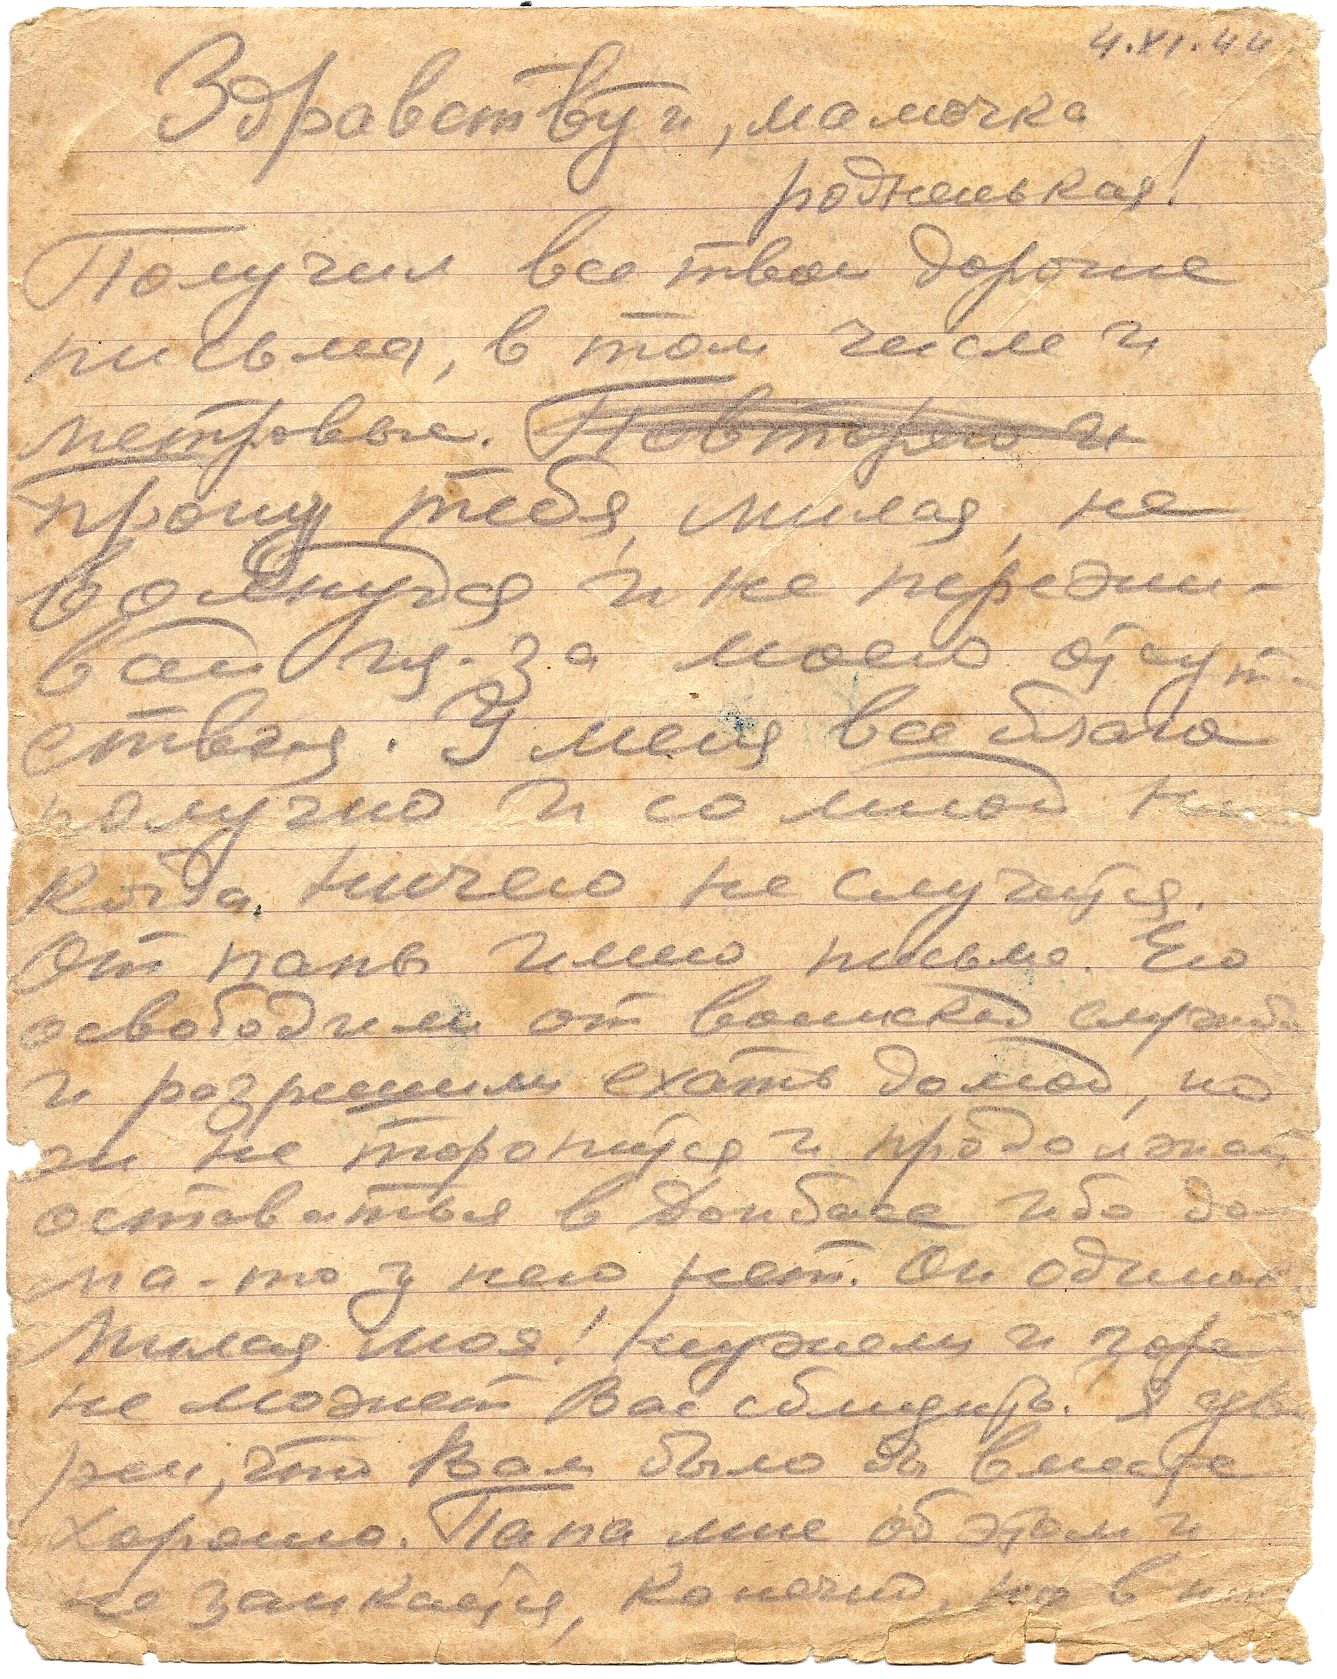 4.XI.44
Здравствуй, мамочка
родненькая!
Получил все твои дорогие
письма, в том числе и
метровые. Повторяю и
прошу тебя, милая, не
волнуйся и не пережи-
вай из-за моего отсут-
ствия. У меня все благо
получно и со мной ни
когда ничего не случится.
От папы имею письмо. Его
освободили от воинской службы
и разрешили ехать домой, но
он не торопится и продолжает
оставаться в Донбасе ибо до-
ма-то у него нет. Он одинок
Милая моя! Неужели и горе
не может Вас сблизить. Я уве
рен, что Вам было бы вместе
хорошо. Папа мне об этом и
не заикается, конечно, но в